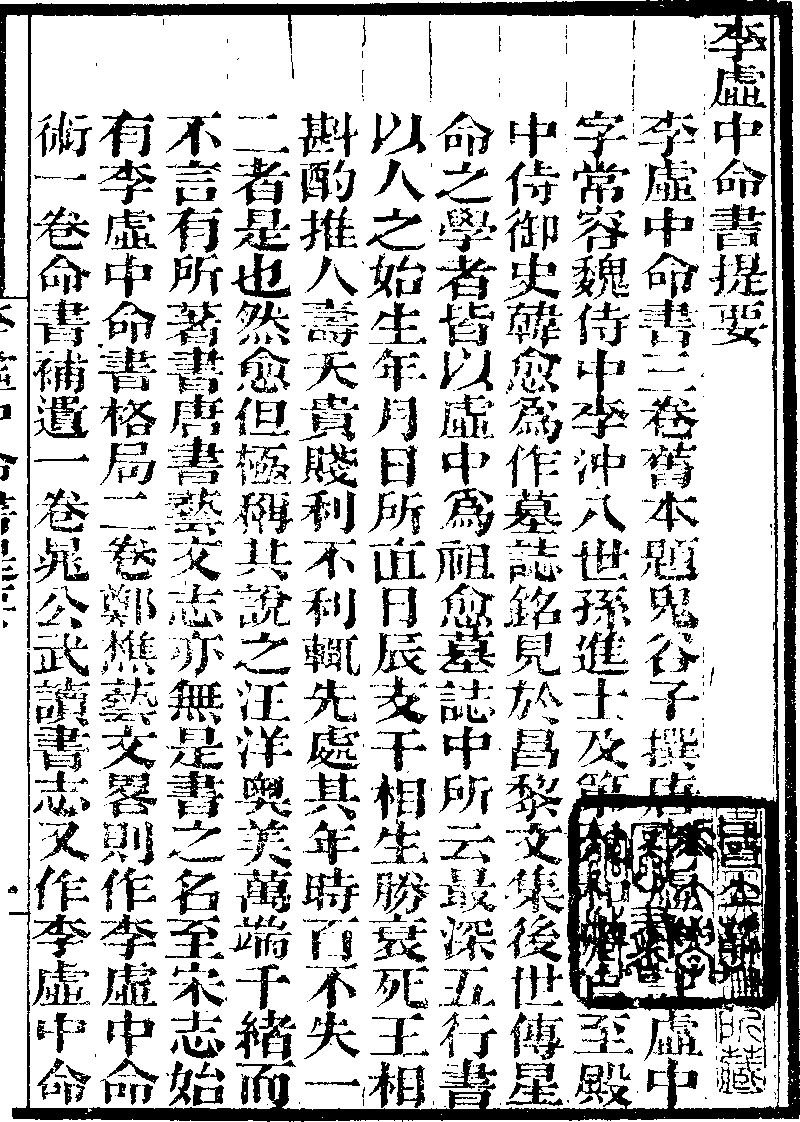 李虛中命書提要
李虛中命書三卷舊本題鬼谷子撰唐虛中
字常容魏侍中李沖八世孫進士及第至殿
中侍御史韓愈為作墓誌銘見於昌黎文集後世傳星
命之學者皆以虛中為祖愈墓誌中所云最深五行書
以人之始生年月日所直日辰支干相生勝衰死王相
斟酌推人壽夭貴賤利不利輒先處其年時百不失一
二者是也然愈但極稱其說之汪洋奧美萬端千緒而
不言有所著書唐書藝文志亦無是書之名至宋志始
有李虛中命書格局二卷鄭樵藝文畧則作李虛中命
術一卷命書補遺一卷晁公武讀書志又作李虛中命